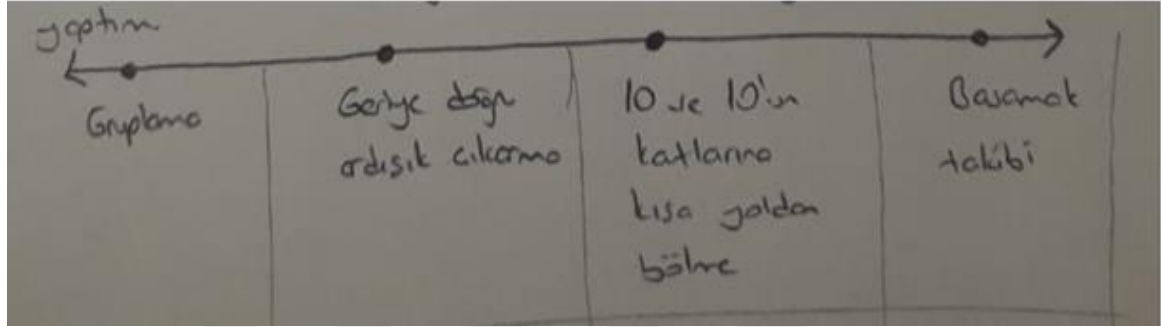 yaptım
Gruplama
Geriye doğru
ardışık çıkarma
10 ve 10'un
katlarına
kısa yoldan
bölme
Basamak
takibi